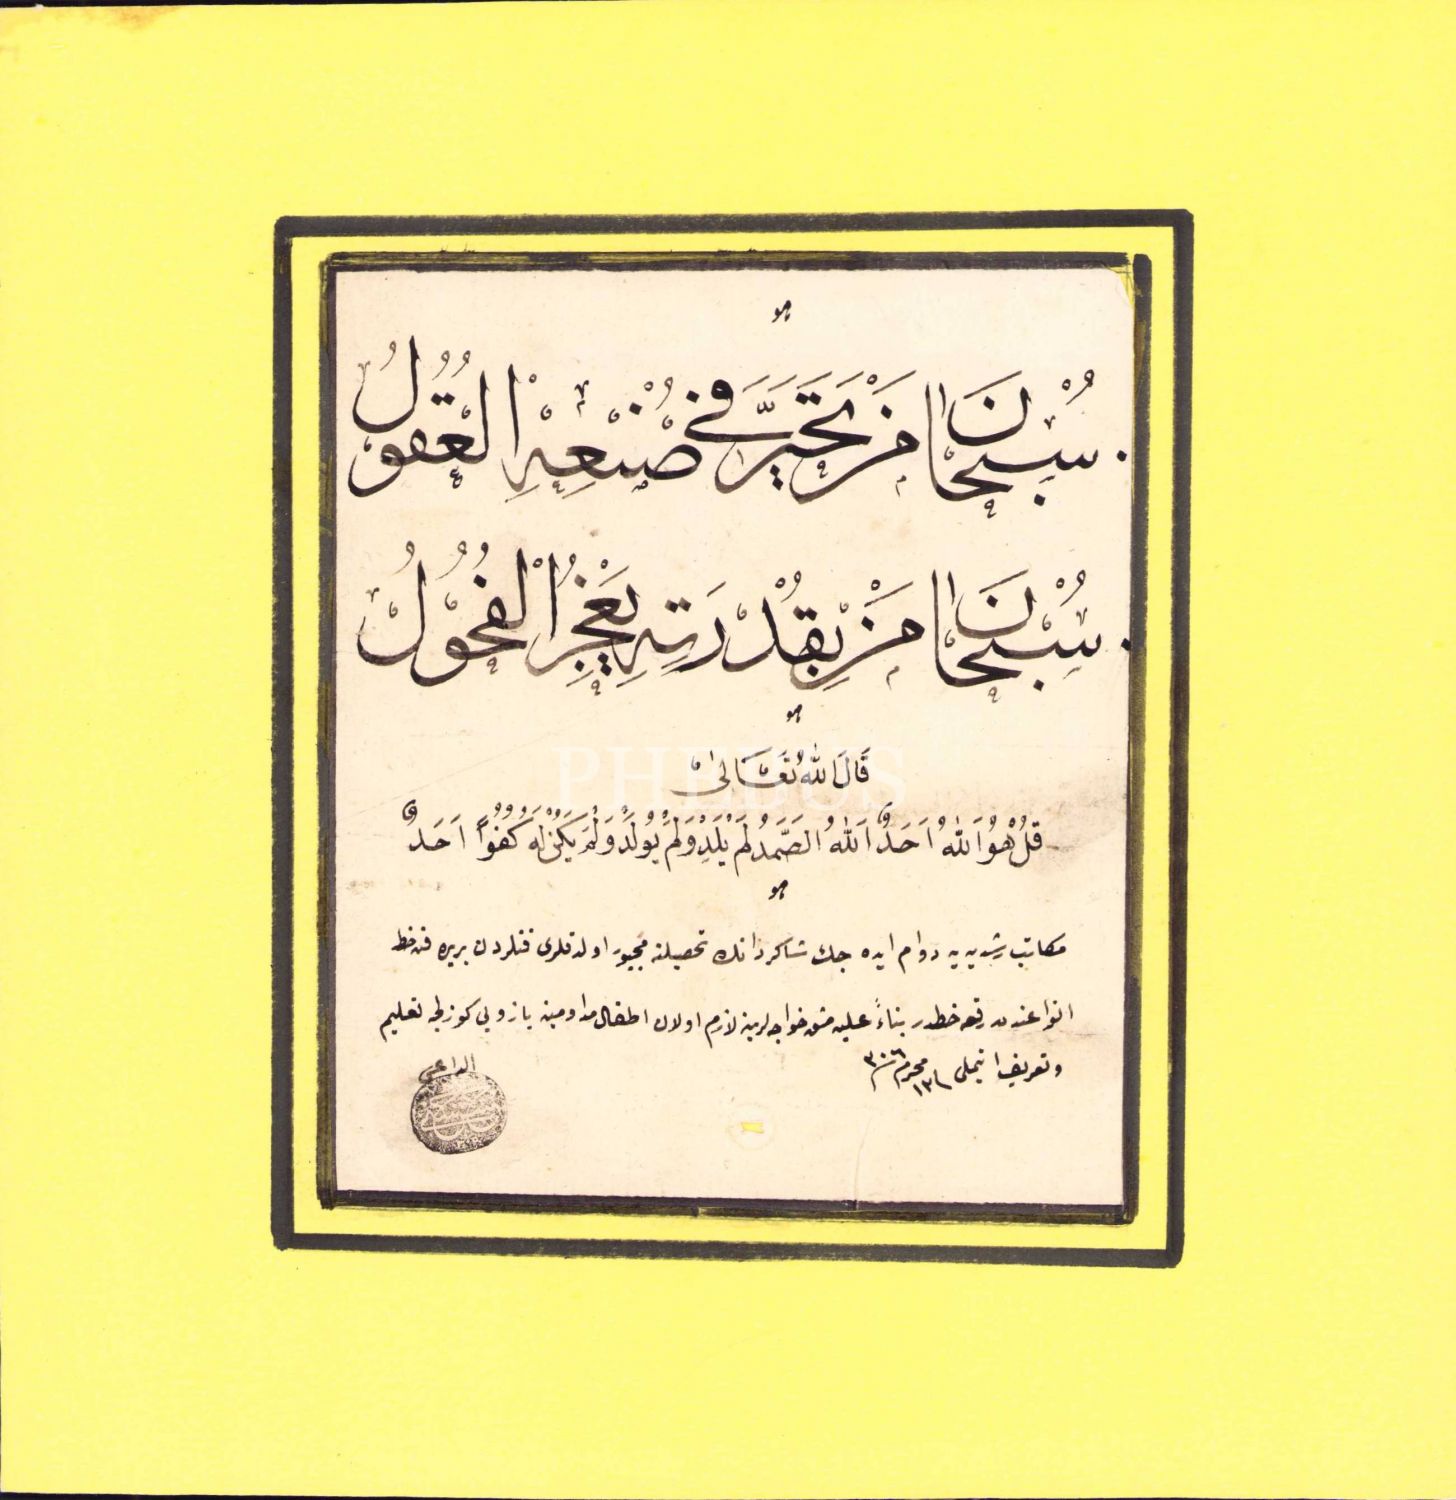 هو
سُبْحَانَ مَنْ تَحَيَّرَ فِي صُنْعِهِ الْعُقُولُ
سُبْحَانَ مَنْ بِقُدْرَتِهِ يَعْجِزُ الْفُحُولُ
هو
قَالَ اللهُ تَعَالٰى
PHEBUS
قُلْ هُوَ اللهُ اَحَدٌ اَللهُ الصَّمَدُ لَمْ يَلِدْ وَلَمْ يُولَدْ وَلَمْ يَكُنْ لَهُ كُفُوًا اَحَدٌ
هو
مكاتب رشديه يه دوام ايده جك شاكردانك تحصيلنه مجبور اولدقلرى فنلردن بريده فن خط
انواعندن رقعه خطدر بناءً عليه مشق خواجه لرينه لازم اولان اطفال مداومينه يازويى كوزلجه تعليم
وتعريف ايتملى محرم ٣٠٦
الداعى